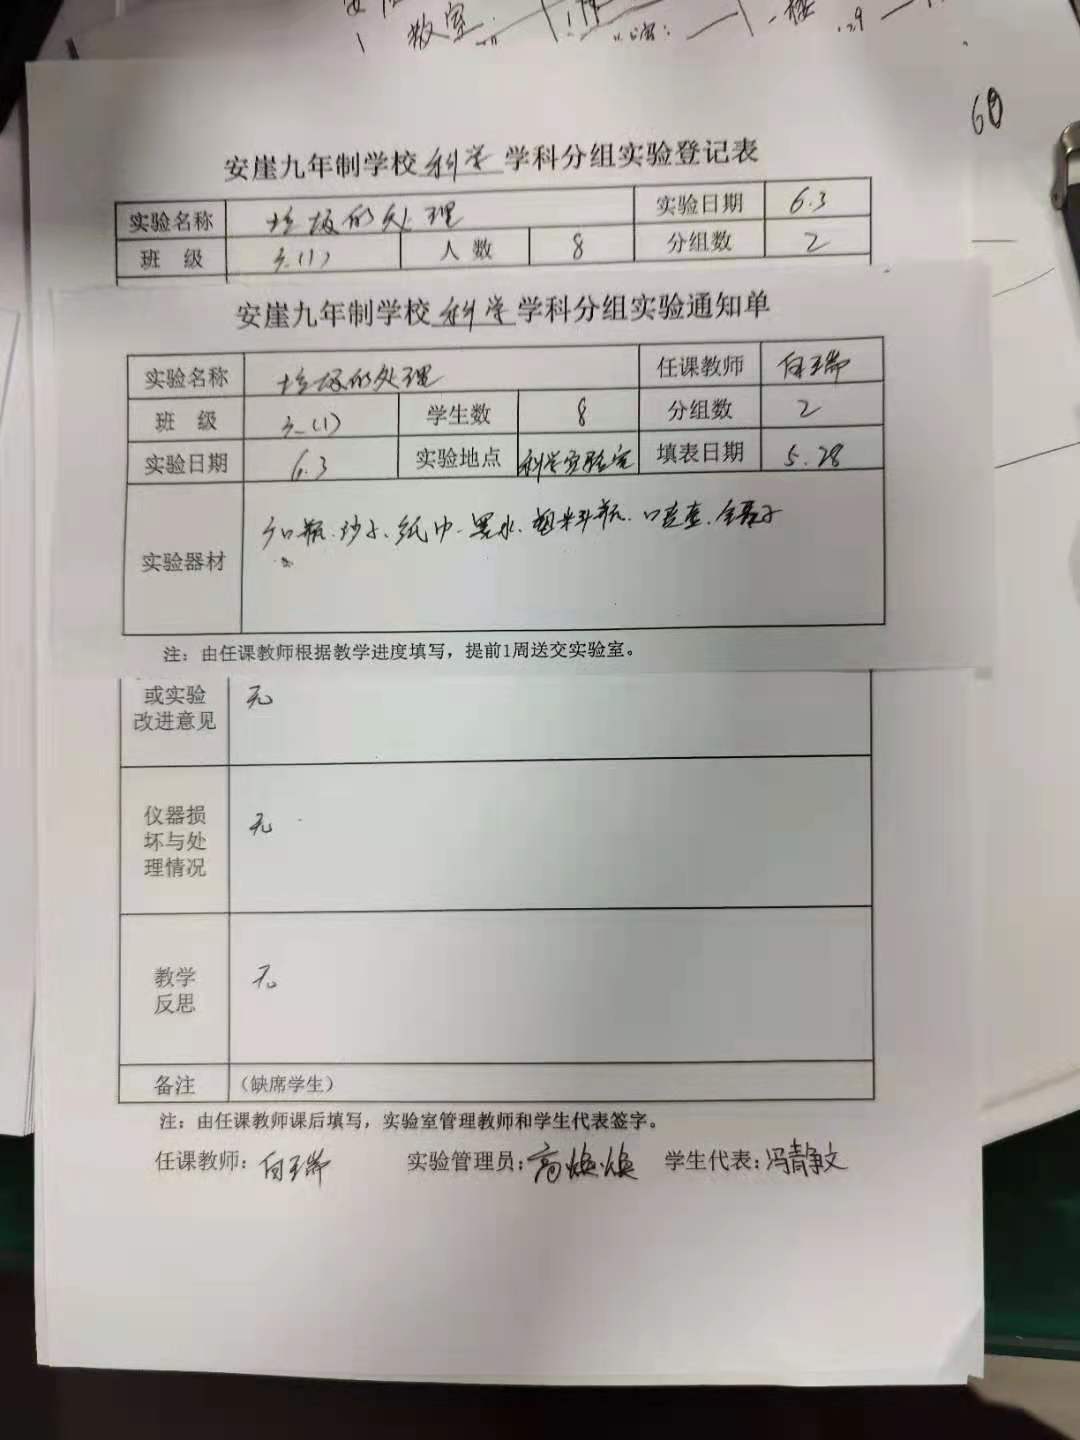 教室
60
安崖九年制学校科学学科分组实验登记表
实验名称 垃圾的处理 实验日期 6.3
班 级 六(1) 人 数 8 分组数 2
安崖九年制学校科学学科分组实验通知单
实验名称 垃圾的处理 任课教师
班 级 六(1) 学生数 8 分组数 2
实验日期 6.3 实验地点 科学实验室 填表日期 5.28
实验器材 广口瓶、沙子、纸巾、墨水、塑料瓶、
注: 由任课教师根据教学进度填写, 提前1周送交实验室。
或实验
改进意见 无
仪器损
坏与处
理情况 无
教学
反思 无
备注 (缺席学生)
注: 由任课教师课后填写, 实验室管理教师和学生代表签字。
任课教师: 实验管理员: 高焕焕 学生代表: 冯静文